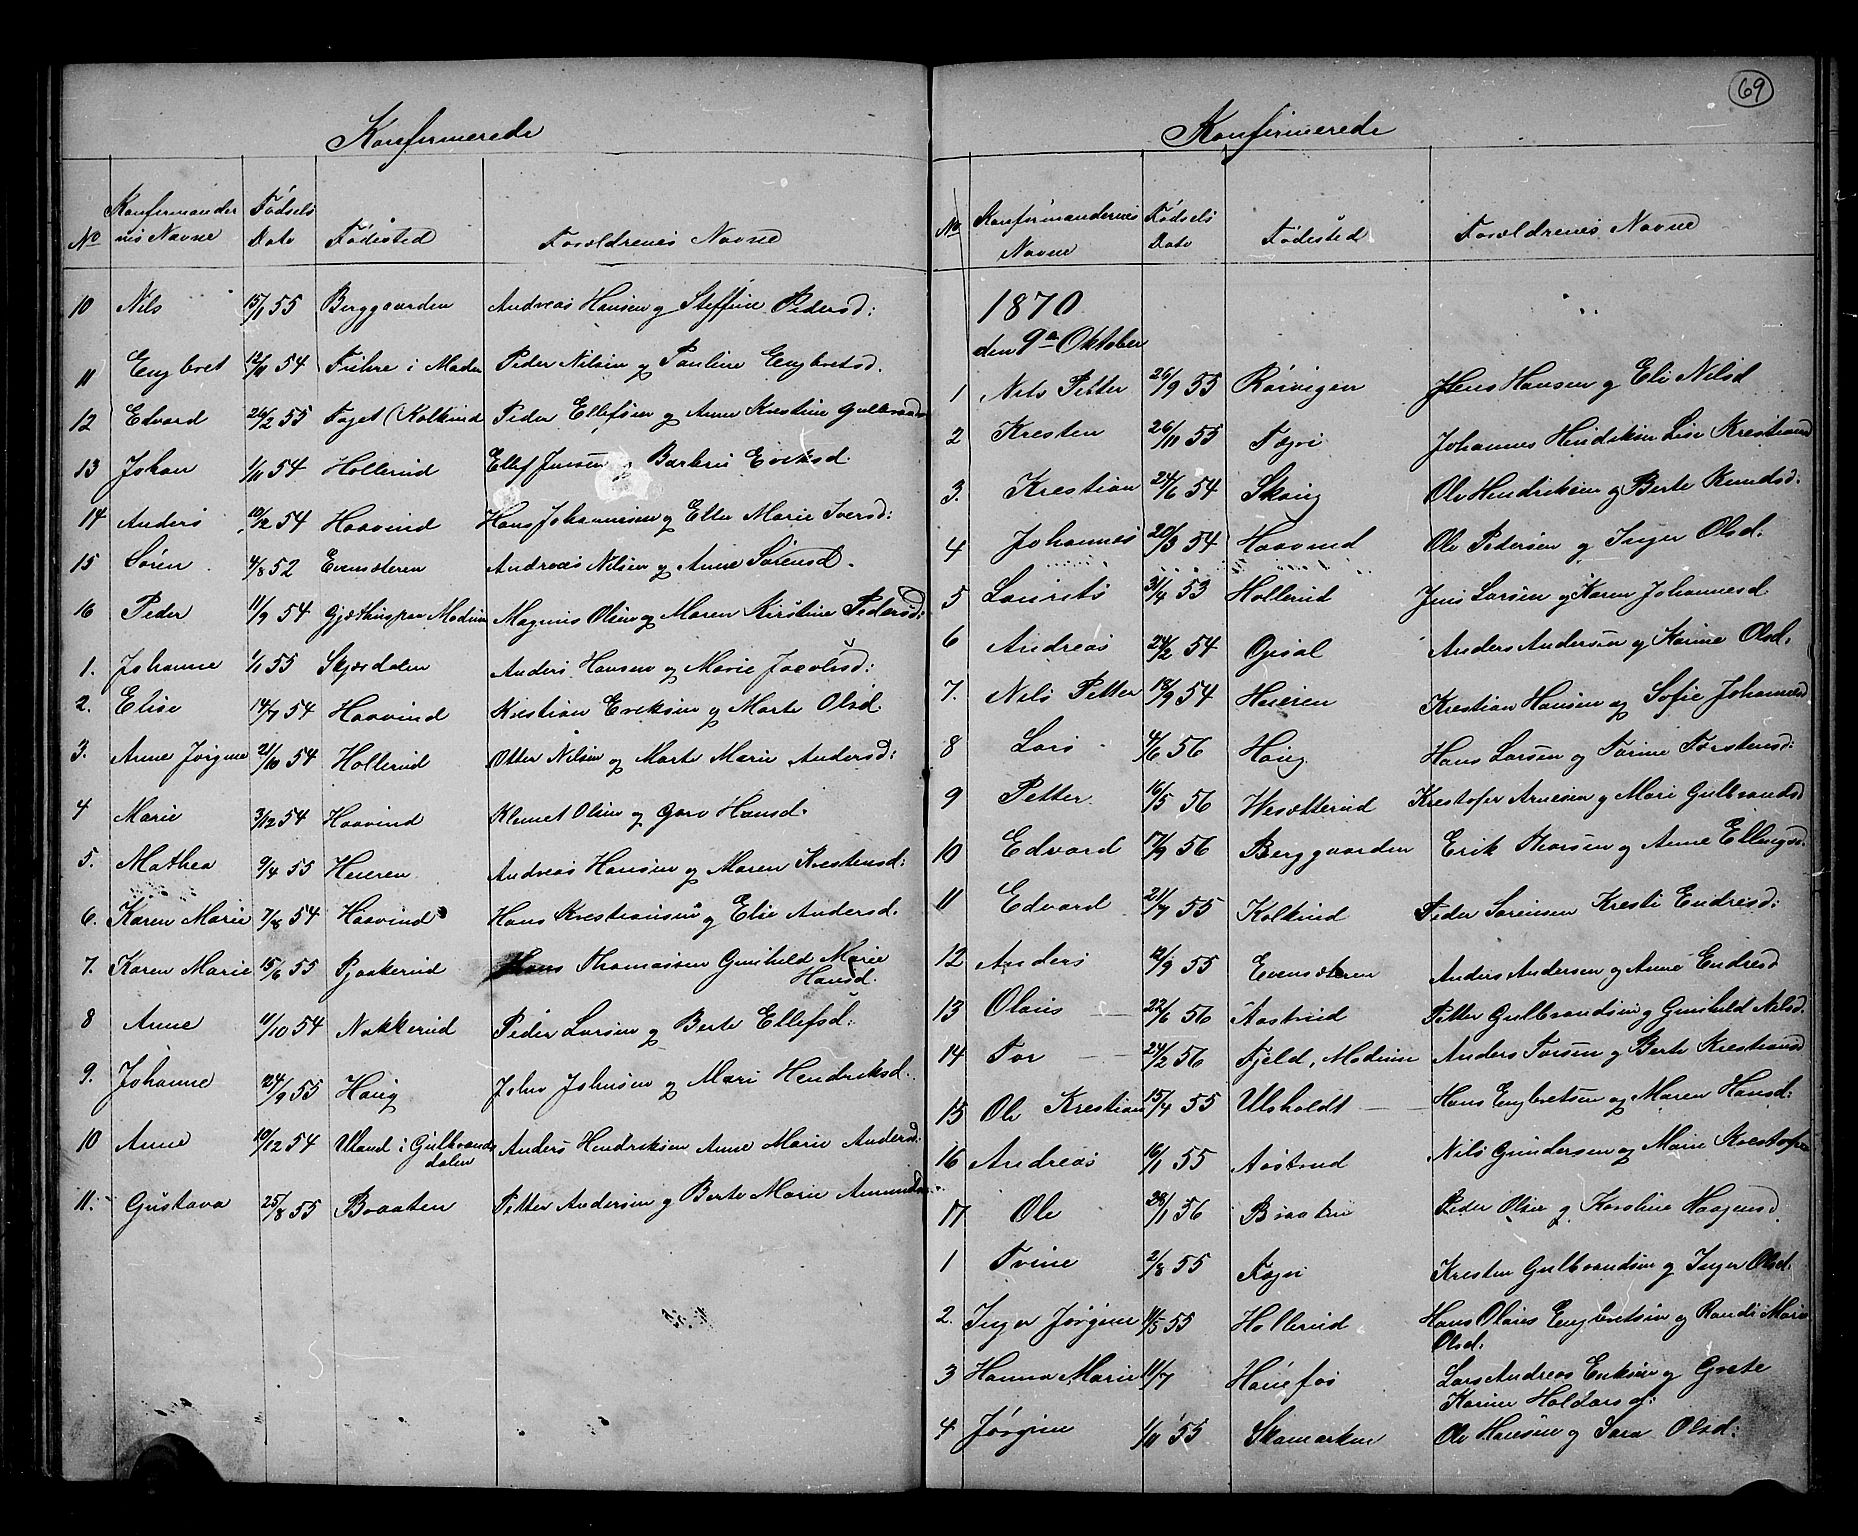 Konfirmerede
No Konfirmander nes Navne Fødsels Dato Fødested Forældrenes Navne
10 Nils 15/1 55 Berggaarden Andreas Hansen og Steffine Pedersd:
11 Engbret 12/11 54 Fuhre i Moden Peder Nilsen og Pauline Engbretsd.
12 Edvard 26/2 55 Foget (Kolkind Peder Ellefsen og Anne Krestine Gulbrands
13 Johan 1/11 54 Hollerud Ellef Jensen og Barbru Eriksd.
14 Anders 10/2 54 Haavind Hans Johannesen og Ellen Marie Iversd:
15 Søren 4/8 52 Evensæteren Andreas Nilsen og Anne Sørensd.
16 Peder 11/9 54 Modum Magnus Olsen og Maren Kirstine Pedersd:
1. Johanne 1/1 55 Skjærdalen Anders Hansen og Marie Jacobsd:
2. Elise 14/7 54 Haavind Kristian Eriksen og Marte Olsd.
3. Anne Jørgine 21/10 54 Hollerud Otter Nilsen og Marte Marie Andersd:
4 Marie 3/12 54 Haavind Klemet Olsen og Goro Hansd.
5. Mathea 9/4 55 Heieren Andreas Hansen og Maren Krestensd:
6. Karen Marie 7/8 54 Haavind Hans Krestiansen og Elie Andersd.
7. Karen Marie 15/6 55 Pjaakerud Hans Thomassen Gunhild Marie
Hansd.
8 Anne 11/10 54 Nakkerud Peder Larsen og Berte Ellefsd:
9. Johanne 24/9 55 Haug John Johnsen og Mari Hendriksd.
10 Anne 10/12 54 Uland i Gulbrands dalen Anders Hendriksen Anne Marie Andersd:
11. Gustava 25/8 55 Braaten Petter Andersen og Berte Marie Amunds

69
Konfirmerede
No Konfirmandernes Navne Fødsels Dato Fødested Forældrenes Navne
1870
den 9de Oktober
1 Nils Petter 26/9 55 Rørvigen Jens Hansen og Eli Nilsd
2 Kresten 26/10 55 Fægri Johannes Hendriksen Lise Krestiansd
3. Krestian 24/6 54 Skoug Ole Hendriksen og Berte Knudsd.
4 Johannes 20/3 54 Haavind Ole Pedersen og Inger Olsd.
5 Laurits 31/4 53 Hollerud Jens Larsen og Karen Johannesd
6 Andreas 24/2 54 Opsal Anders Andersen og Karine Olsd.
7. Nils Petter 18/9 54 Heieren Krestian Hansen og Sofie Johannesd
8 Lars 4/6 56 Haug Hans Larsen og Torine Torstensd:
9 Petter 16/5 56 Wesætterud Krestofer Arnesen og Mari Gulbrandsd
10 Edvard 17/9 56 Berggaarden Erik Thorsen og Anne Ellingsd.
11 Edvard 21/7 55 Kolkind Peder Sørensen Kresti Endresd:
12 Anders 12/9 55 Evensæteren Anders Andersen og Anne Endresd
13 Olaus 22/6 56 Aastrud Petter Gulbrandsen og Gunhild Nilsd.
14 Tor 24/2 56 Fjeld, Modum Anders Torsen og Berte Krestiansd
15 Ole Krestian 15/4 55 Ulsholdt Hans Engbretsen og Maren Hansd:
16 Andreas 16/1 55 Aastrud Nils Gundersen og Marie Krestofer
17 Ole 28/1 56 Braaten Peder Olsen og Karoline Haagensd.
1 Trine 2/8 55 Fægri Kresten Gulbrandsen og Inger Olsd.
2. Inger Jørgine 11/5 55 Hollerud Hans Olaus Engbretsen og Randi Marie
Olsd:
3 Hanna Marie 11/7 Hønefos Lars Andreas Eriksen og Grete
Karine Haldorsd:
4 Jørgine 1/11 55 Skamarken Ole Hansen og Sara Olsd: